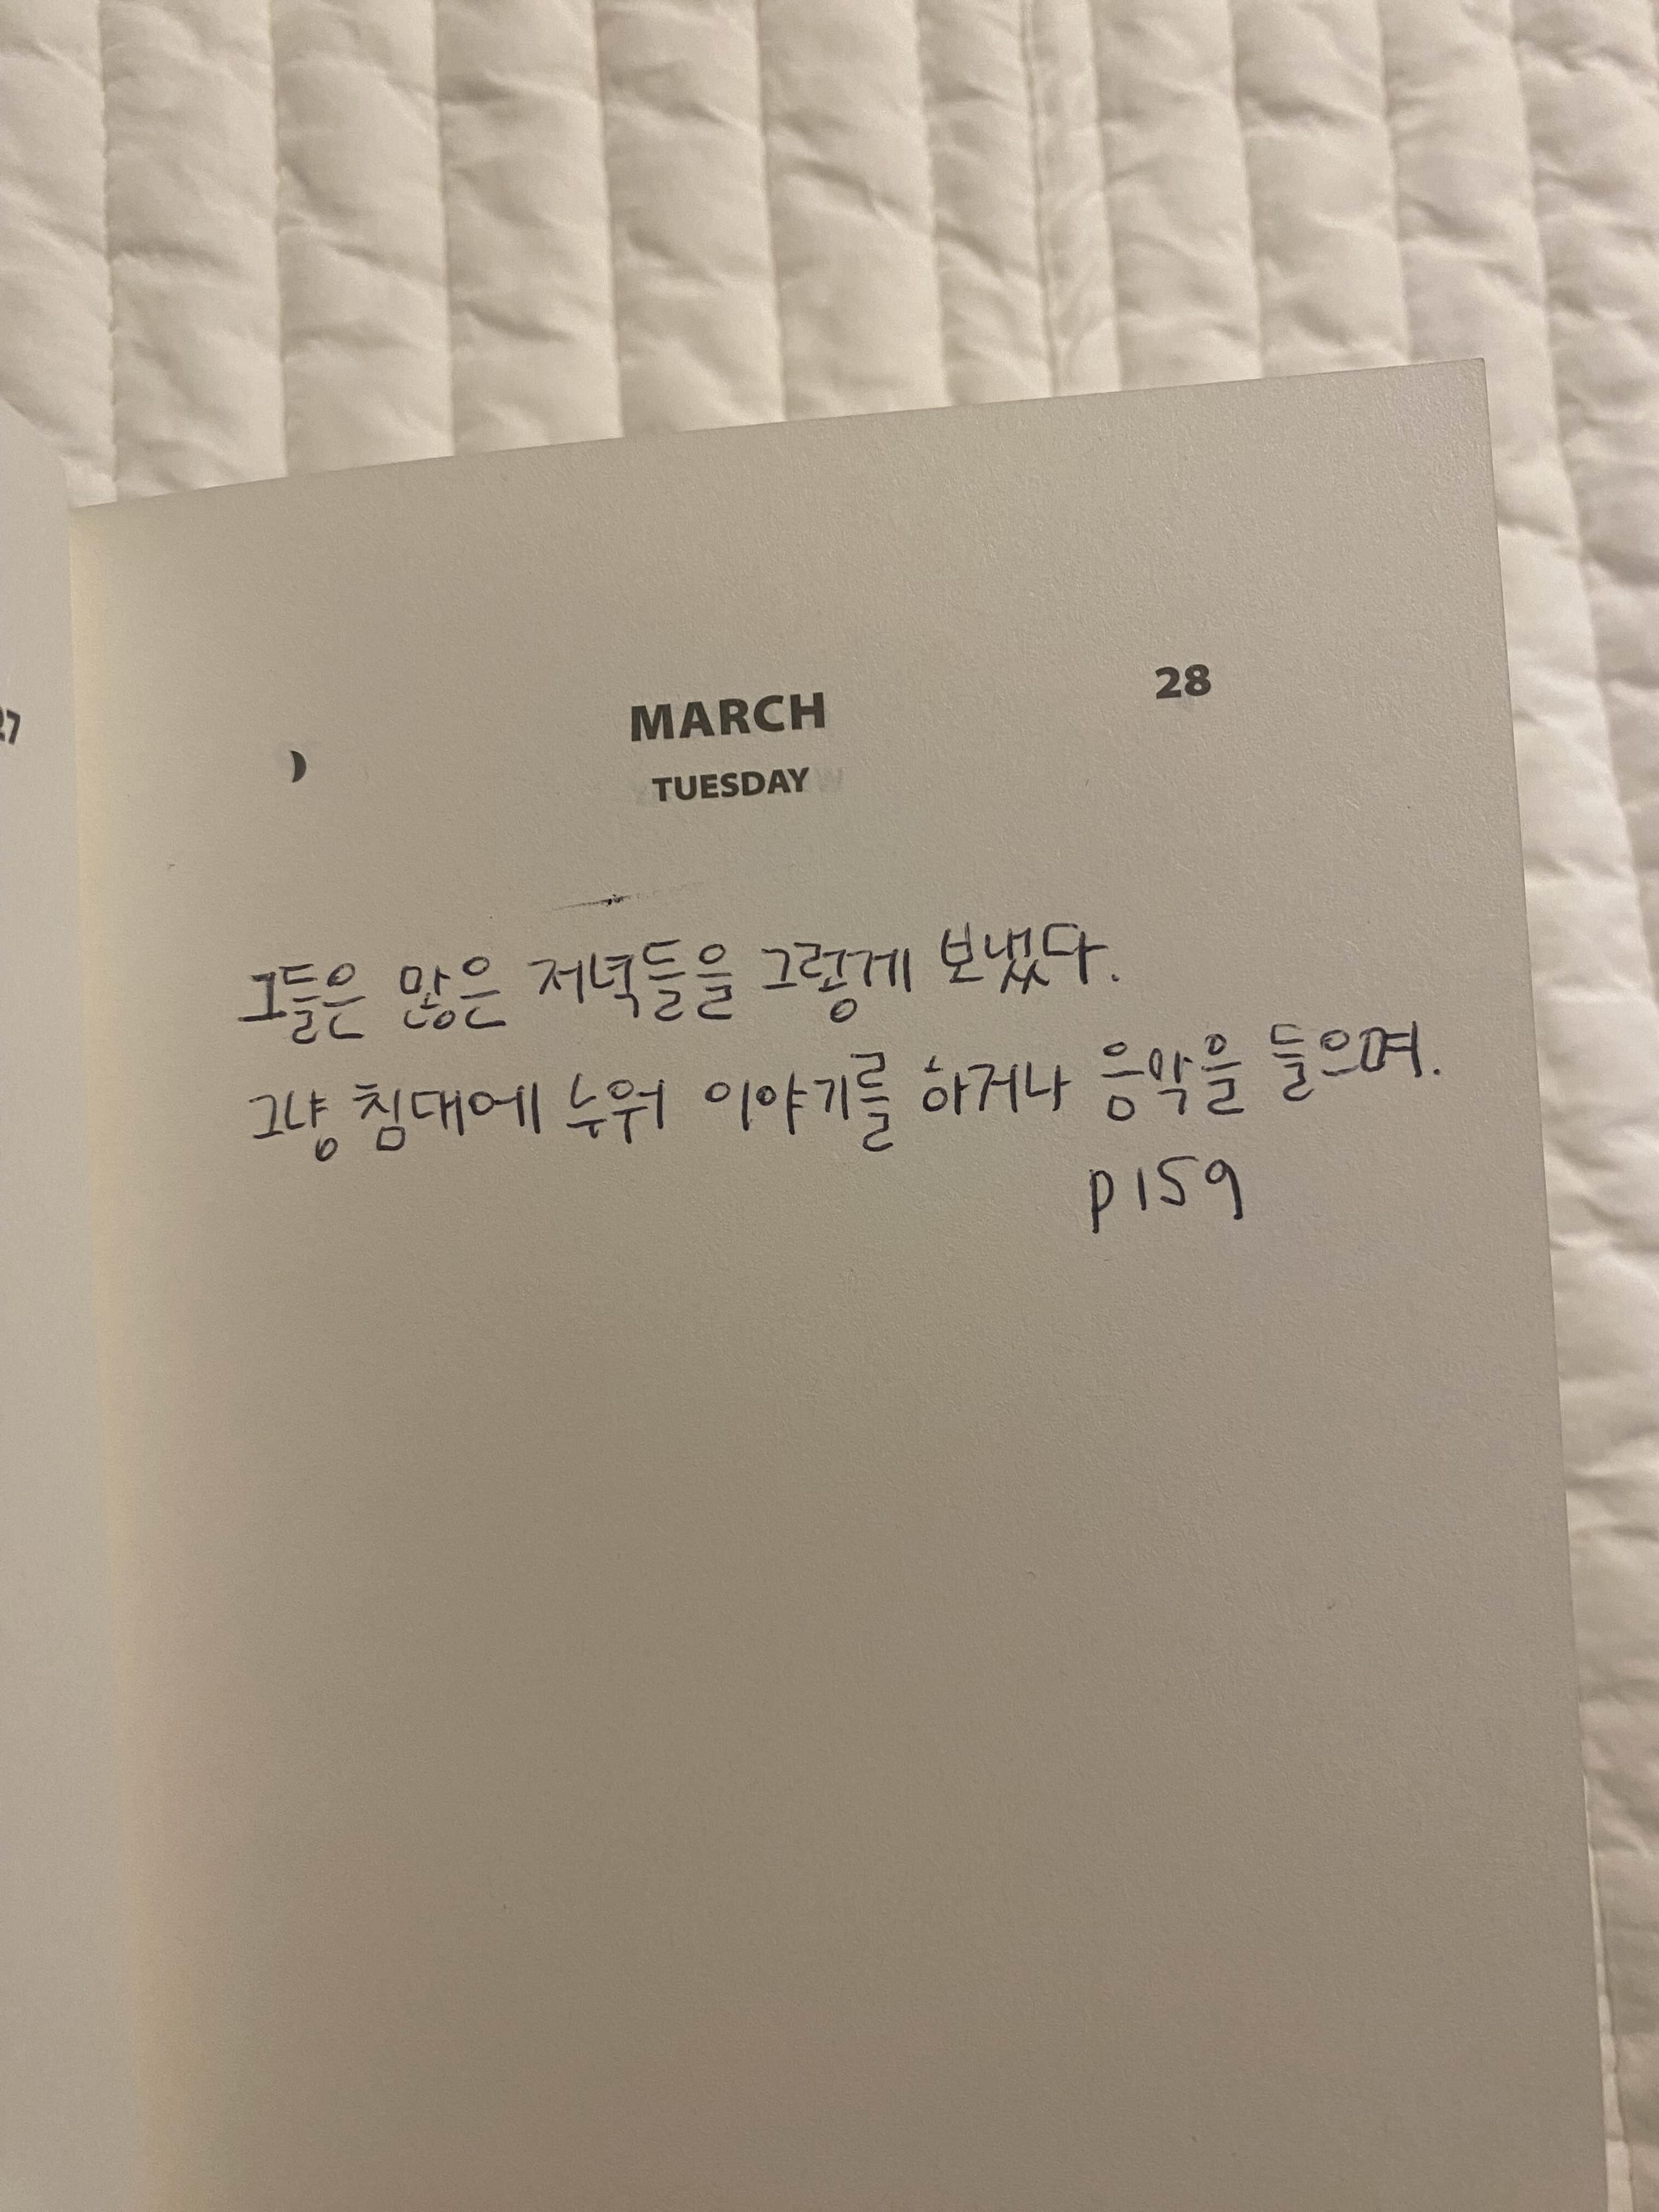 27
MARCH
28
TUESDAY
그들은 많은 저녁들을 그렇게 보냈다.
그냥 침대에 누워 이야기를 하거나 음악을 들으며.
p159